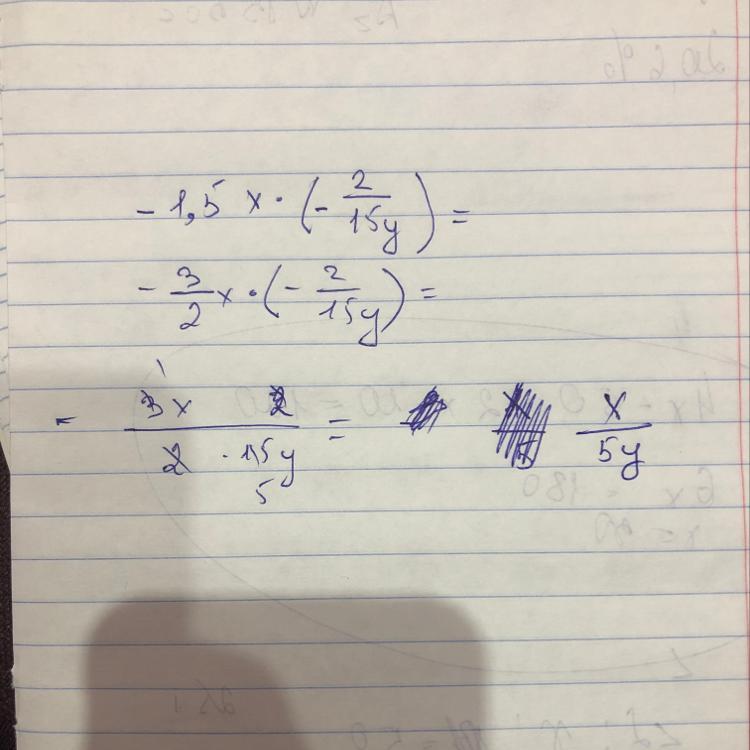 - 1,5 x · (- 2/15y) =
- 3/2 x · (- 2/15y) =
- 3x 2 / 2 · 15y = x/5y
1
5